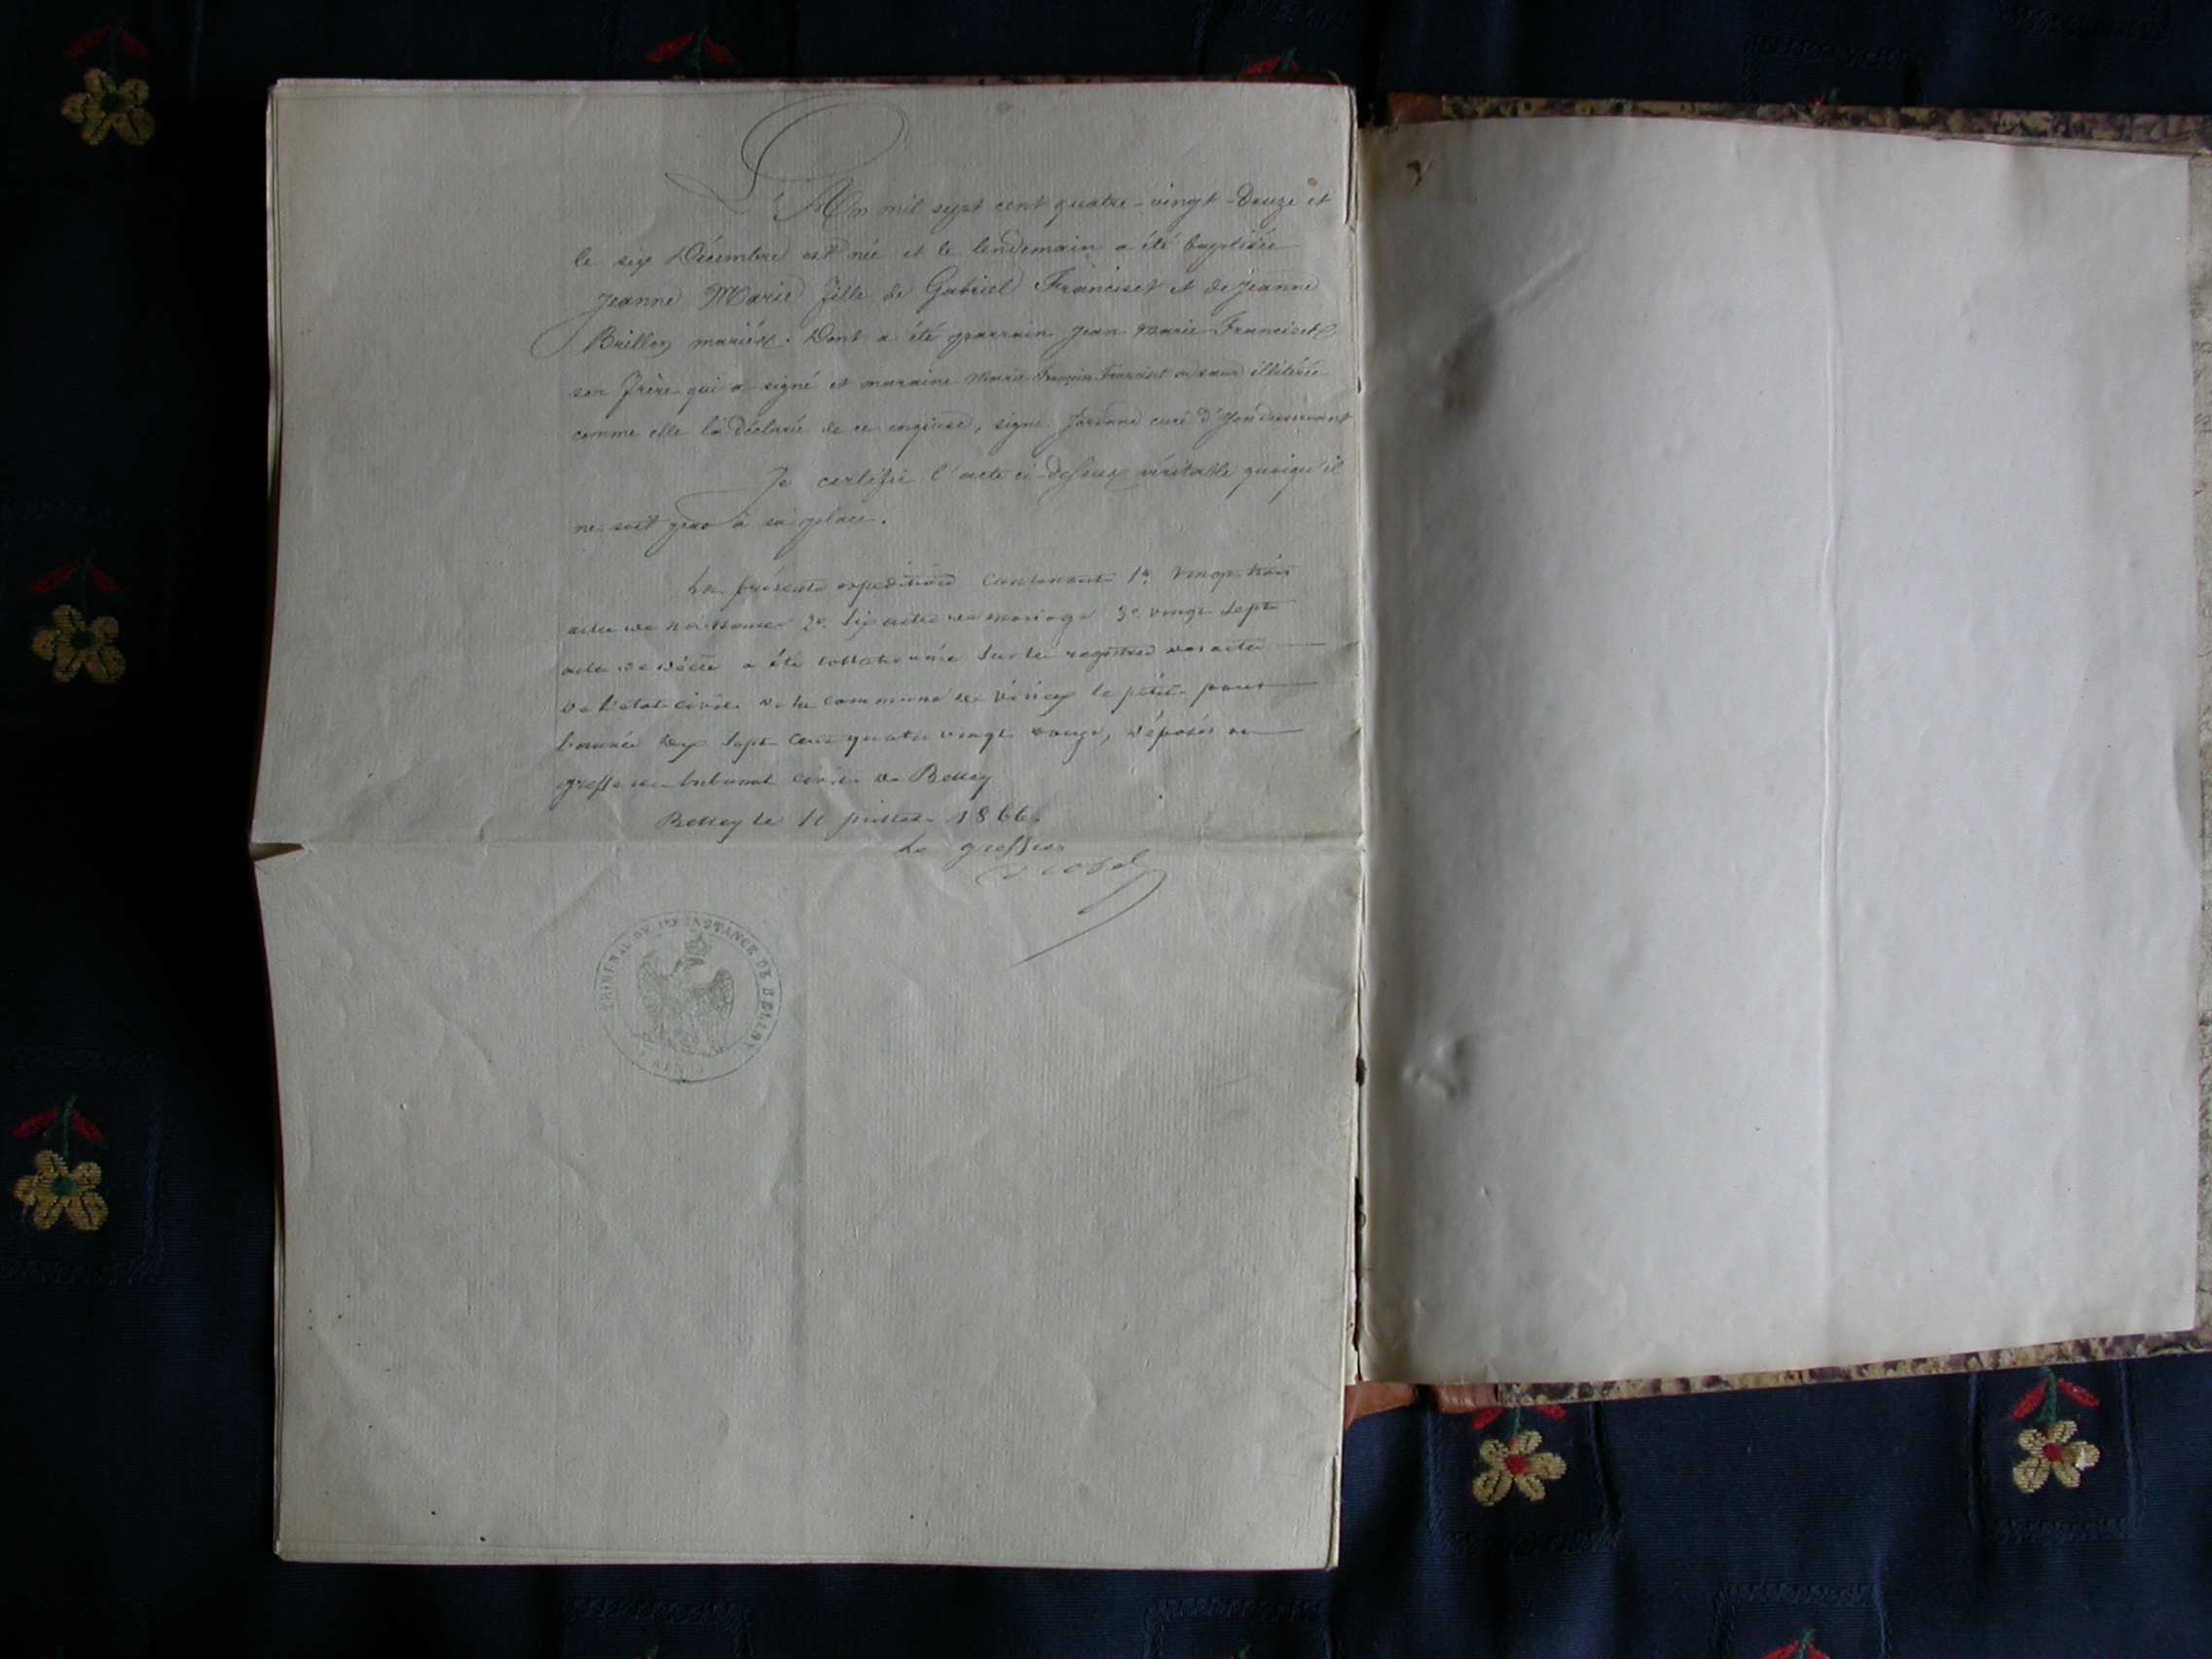 L'An mil sept cent quatre-vingt-Douze et
le six Décembre est née et le lendemain a été baptisée
Jeanne Marie fille de Gabriel Franciset et de Jeanne
Brillon mariés. Dont a été parrain Jean Marie Franciset
son frère qui a signé et maraine Marie Françoise Franciset sa sœur illitérée
comme elle l'a déclarée de ce enquise, signé curé d'Yon desservant
Je certifie l'acte ci-dessus véritable quoiqu'il
ne soit pas à sa place.
La présente expédition contenant 1º vingt trois
actes de naissances 2º Six actes de mariage 3º vingt sept
actes de décès a été collationnée sur les registres des actes
de l'état civil de la commune de le petit pour
l'année dix sept cent quatre vingt douze, déposés au
greffe du tribunal civil de Belley
Belley le 11 juillet 1866.
Le greffier
TRIBUNAL DE 1RE INSTANCE DE BELLEY
(AIN)